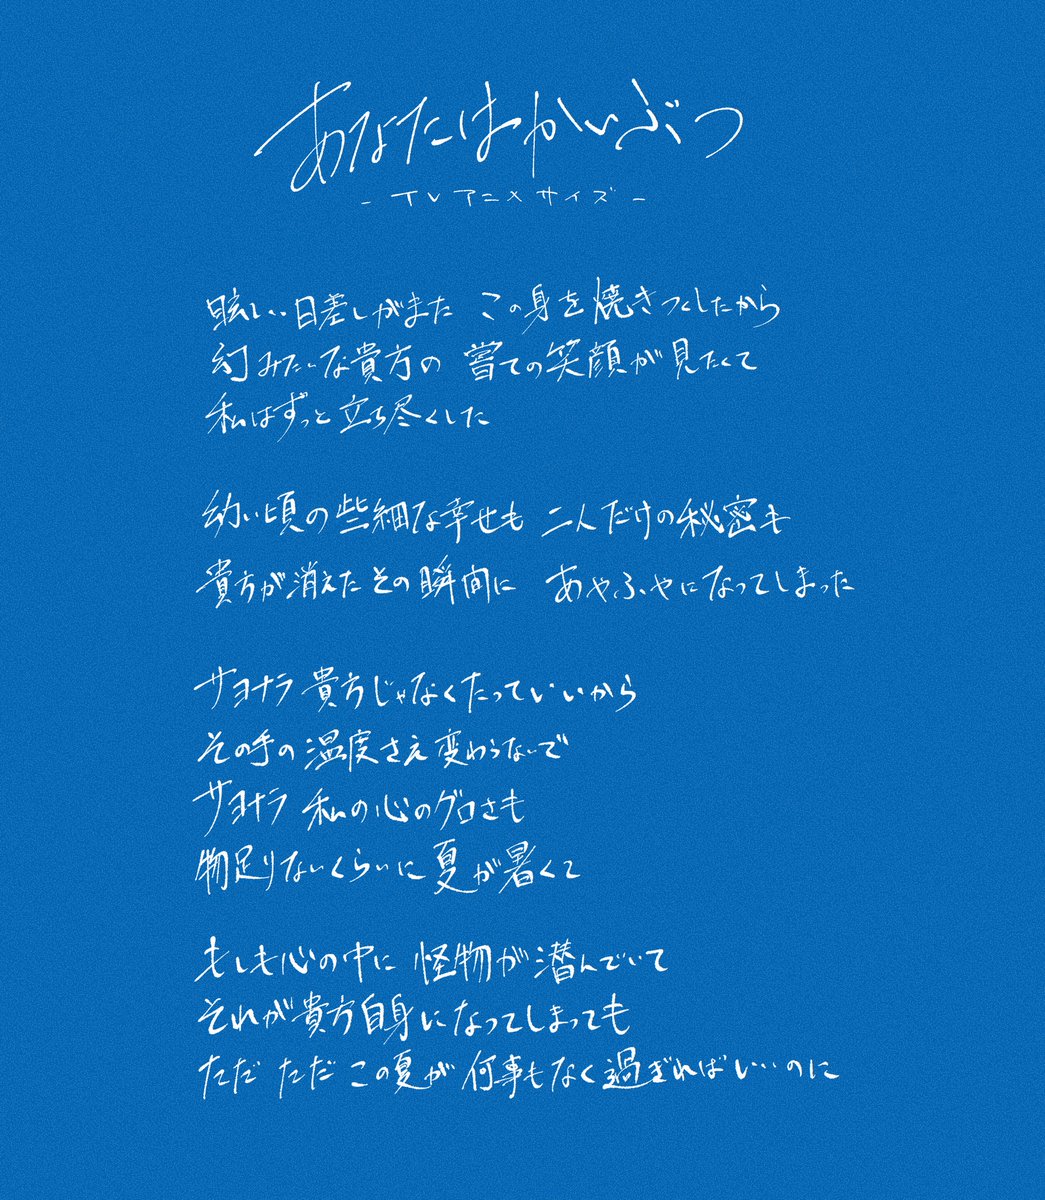 あなたはかいぶつ
- TVアニメサイズ -
眩しい日差しがまた この身を焼きつくしたから
幻みたいな貴方の 嘗ての笑顔が見たくて
私はずっと立ち尽くした
幼い頃の些細な幸せも 二人だけの秘密も
貴方が消えたその瞬間に あやふやになってしまった
サヨナラ 貴方じゃなくたっていいから
その手の温度さえ変わらないで
サヨナラ 私の心のグロさも
物足りないくらいに夏が暑くて
もしも心の中に 怪物が潜んでいて
それが貴方自身になってしまっても
ただ ただ この夏が 何事もなく過ぎればいいのに